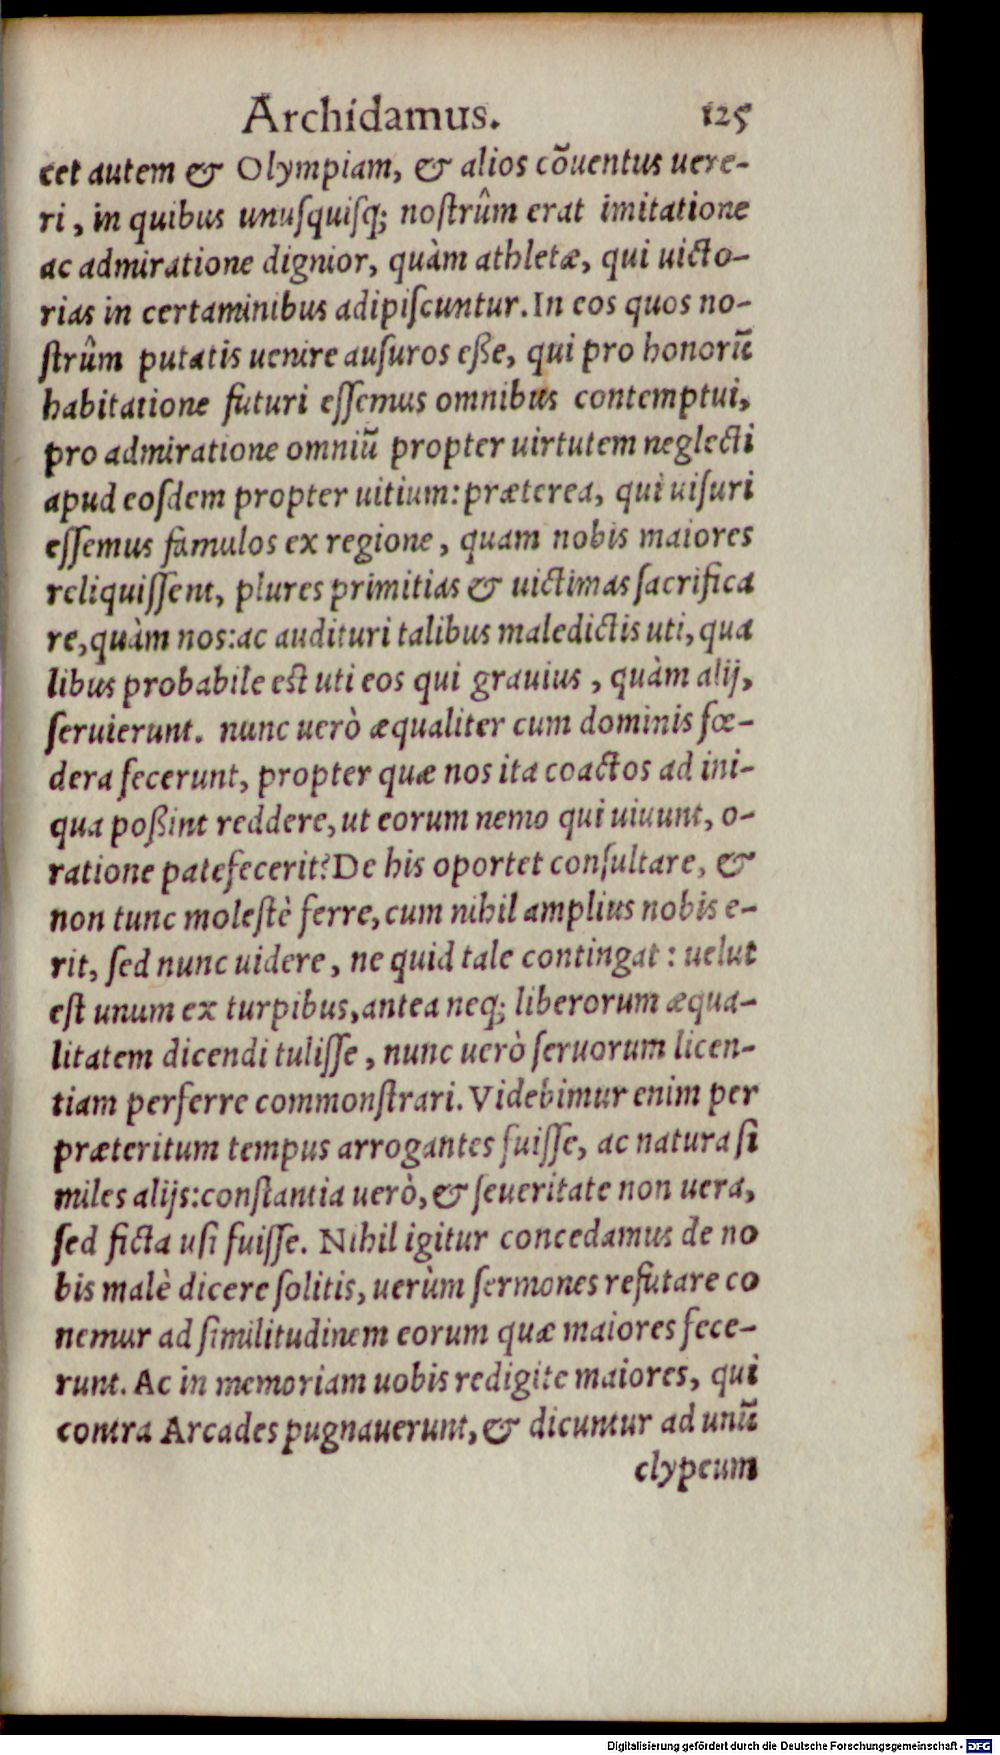 Archidamus. 125
cet autem & Olympiam, & alios cõuentus uere-
ri, in quibus unuſquiſq; noſtrûm erat imitatione
ac admiratione dignior, quàm athletæ, qui uicto-
rias in certaminibus adipiſcuntur. In eos quos no-
ſtrûm putatis uenire auſuros eße, qui pro honorũ
habitatione futuri eſſemus omnibus contemptui,
pro admiratione omniũ propter uirtutem neglecti
apud eoſdem propter uitium: præterea, qui uiſuri
eſſemus famulos ex regione, quam nobis maiores
reliquiſſent, plures primitias & uictimas ſacrifica
re, quàm nos: ac audituri talibus maledictis uti, qua
libus probabile est uti eos qui grauius, quàm alij,
ſeruierunt. nunc uerò æqualiter cum dominis fœ-
dera fecerunt, propter quæ nos ita coactos ad ini-
qua poßint reddere, ut eorum nemo qui uiuunt, o-
ratione patefecerit? De his oportet conſultare, &
non tunc moleſtè ferre, cum nihil amplius nobis e-
rit, ſed nunc uidere, ne quid tale contingat: uelut
eſt unum ex turpibus, antea neq; liberorum æqua-
litatem dicendi tuliſſe, nunc uerò ſeruorum licen-
tiam perferre commonſtrari. Videbimur enim per
præteritum tempus arrogantes fuiſſe, ac natura ſi
miles alijs: conſtantia uerò, & ſeueritate non uera,
ſed ficta uſi fuiſſe. Nihil igitur concedamus de no
bis malè dicere ſolitis, uerùm ſermones refutare co
nemur ad ſimilitudinem eorum quæ maiores fece-
runt. Ac in memoriam uobis redigite maiores, qui
contra Arcades pugnauerunt, & dicuntur ad unũ
clypeum
Digitalisierung gefördert durch die Deutsche Forschungsgemeinschaft - DFG